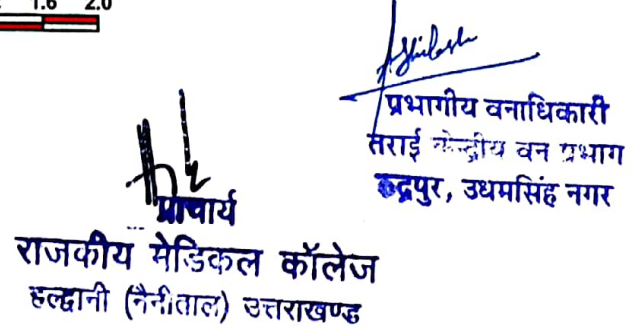 1.6 2.0
प्रभागीय वनाधिकारी
तराई केन्द्रीय वन प्रभाग
रूद्रपुर, उधमसिंह नगर
प्राचार्य
राजकीय मेडिकल कॉलेज
हल्द्वानी (नैनीताल) उत्तराखण्ड